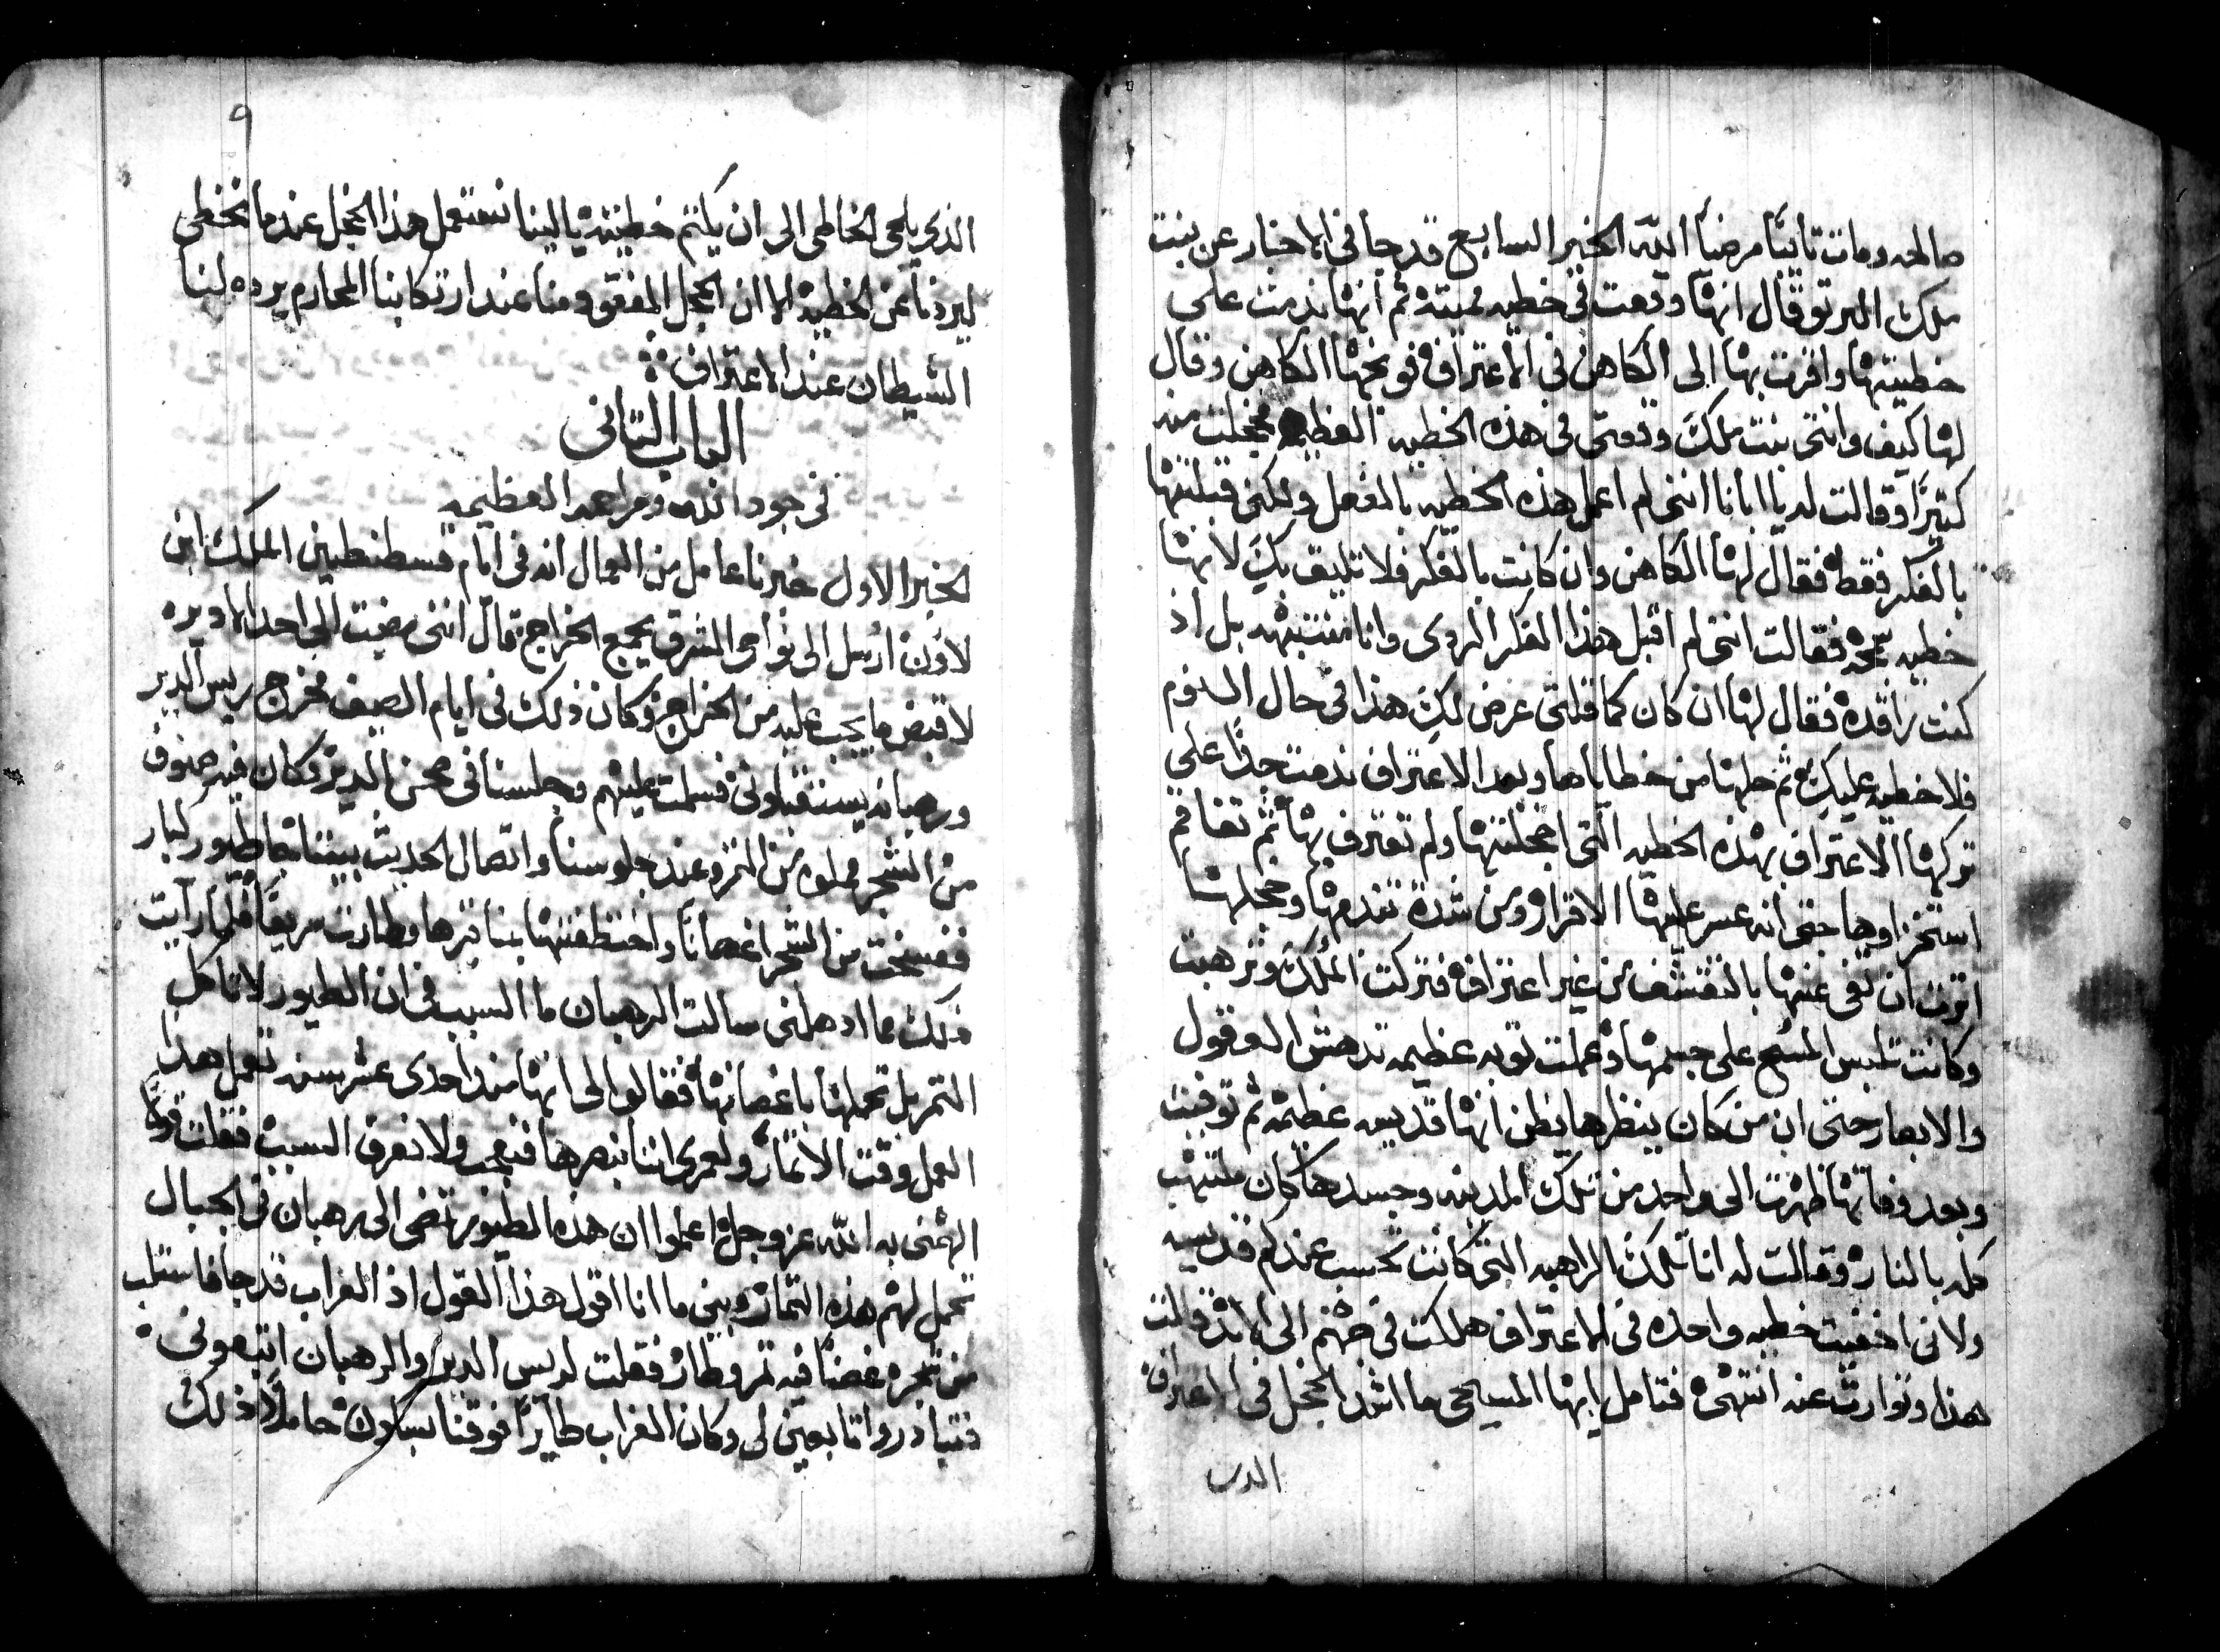 صالحه ومات تائبًا مرضيًا الله الخبر السابع قد جا في الاخبار عن بنت
ملك البرتوقال انها وقعت في خطيه مميته ثم انها ندمت علي
خطيتها واقرت بها الى الكاهن في الاعتراف فوبخها الكاهن وقال
لها كيف وانتي بنت ملك وقعتي في هذه الخطيه العظيمه فخجلت منه
كتيرًا وقالت له يا ابانا انني لم اعمل هذه الخطيه بالفعل ولكني قبلتها
بالفكر فقط فقال لها الكاهن وان كانت بالفكر فلا تليق بكِ لانها
خطيه سمجه فقالت انني لم اقبل هذا الفكر الردى وانا منتبهه بل اذ
كنت راقده فقال لها ان كان كما قلتي عرض لكِ هذا في حال النوم
فلا خطيه عليكِ ثم حلها من خطاياها وبعد الاعتراف ندمت جدًا علي
تركها الاعتراف بهذه الخطيه التي اخجلتها ولم تعترف بها ثم تفاقم
استخزاوها حتى انه عسر عليها الاقرار ومن شدة تندمها وخجلها
اترت ان تفي عنها بالتقشف من غير اعتراف فتركت المُلك وترهبت
وكانت تلبس المسح على جسمها وعملت توبه عظيمه تدهش العقول
والابصار حتى ان من كان ينظرها يظن انها قديسه عظيمه ثم توفيت
وبعد وفاتها ظهرت الى واحد من تلك المدينه وجسدها كان ملتهب
كله بالنار وقالت له انا تلك الراهبه التي كانت تحسب عندكم قديسه
ولاني اخفيت خطيه واحده في الاعتراف هلكت في جهنم الى الابد قالت
هذا وتوارت عنه انتهى فتامل ايها المسيحي ما اشد الخجل في الاعتراف
الدي
٩
الذي يلجي الخاطي الى ان يكتم خطيته يا ليتنا نستعمل هذا الخجل عندما نخطي
ليردنا عن الخطيه الا ان الخجل المفقود منا عند ارتكابنا المحارم يرده لنا
الشيطان عند الاعتراف
الباب التاني
في جود الله ومراحمه العظيمه
الخبر الاول خبرنا عامل من العمال انه في ايام قسطنطين الملك ابن
لاون ارسل الى نواحي المشرق يجمع الخراج قال انني مضيت الى احد الاديره
لاقبض ما يجب عليه من الخراج وكان ذلك في ايام الصيف فخرج ريس الدير
ورهبانه يستقبلوني فسلمت عليهم وجلسنا في صحن الدير وكان فيه صنوف
من الشجر مملوه من التمر وعند جلوسنا واتصال الحديث بيننا جا طيور كبار
ففسخت من الشجر اغصانًا واختطفتها بمناقيرها وطارت سريعًا فلما رايت
ذلك مما ادهلني سالت الرهبان ما السبب في ان الطيور لا تاكل
التمر بل تحملها باغصانها فقالوا لي انها منذ احدى عشر سنه تعمل هذا
العمل وقت الاتمار ولعمري اننا نبصرها فنعجب ولا نعرف السبب فقلت قولًا
الهمني به الله عز وجل اعلموا ان هذه الطيور تمضي الى رهبان في الجبال
تحمل لهم هذه التمار وبينما انا اقول هذا القول اذ الغراب قد جا فاستلب
من شجره غصنًا فيه تمر وطار فقلت لريس الدير والرهبان اتبعوني
فتبادروا تابعين لي وكان الغراب طايرًا فوقنا بسكون حاملًا ذلك